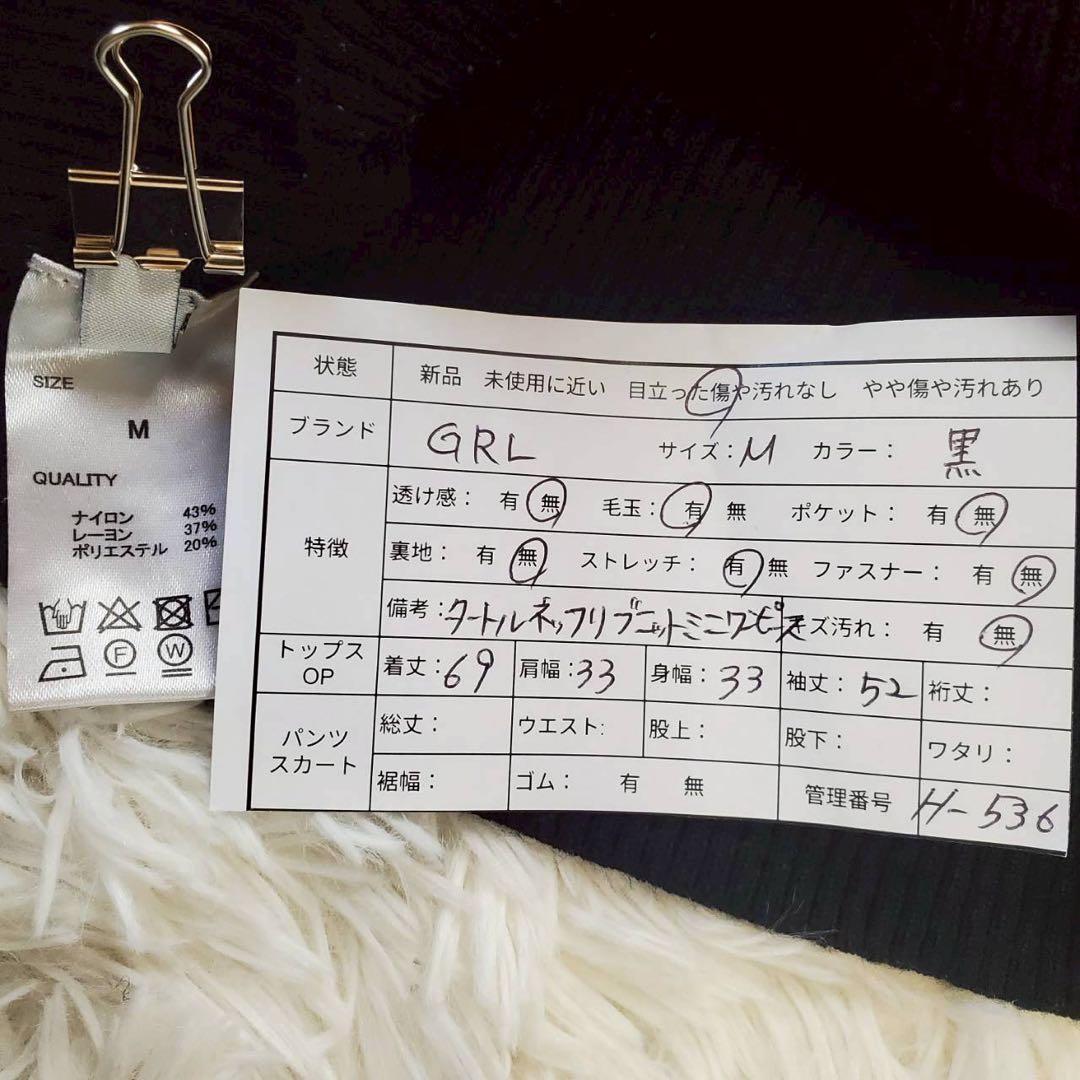 SIZE
M
QUALITY
ナイロン 43%
レーヨン 37%
ポリエステル 20%
F
W
状態 新品 未使用に近い 目立った傷や汚れなし やや傷や汚れあり
ブランド GRL サイズ：M カラー： 黒
特徴
透け感： 有 無 毛玉： 有 無 ポケット： 有 無
裏地： 有 無 ストレッチ： 有 無 ファスナー： 有 無
備考：タートルネックリブニットミニワンピース ズ汚れ： 有 無
トップス OP 着丈：69 肩幅：33 身幅：33 袖丈：52 裄丈：
パンツ スカート 総丈： ウエスト: 股上： 股下： ワタリ：
裾幅： ゴム： 有 無 管理番号 H-536